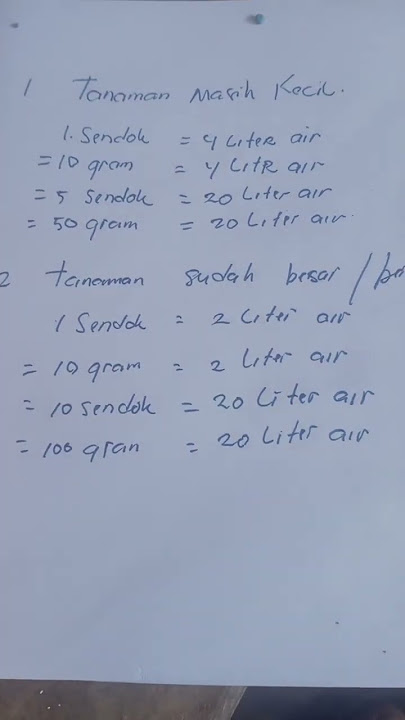 1 Tanaman Masih Kecil.
1. Sendok = 4 Liter air
= 10 gram = 4 Litr air
= 5 Sendok = 20 Liter air
= 50 gram = 20 Liter air.
2 tanaman sudah besar /
1 Sendok = 2 Liter air
= 10 gram = 2 Liter air
= 10 sendok = 20 Liter air
= 100 gran = 20 Liter air